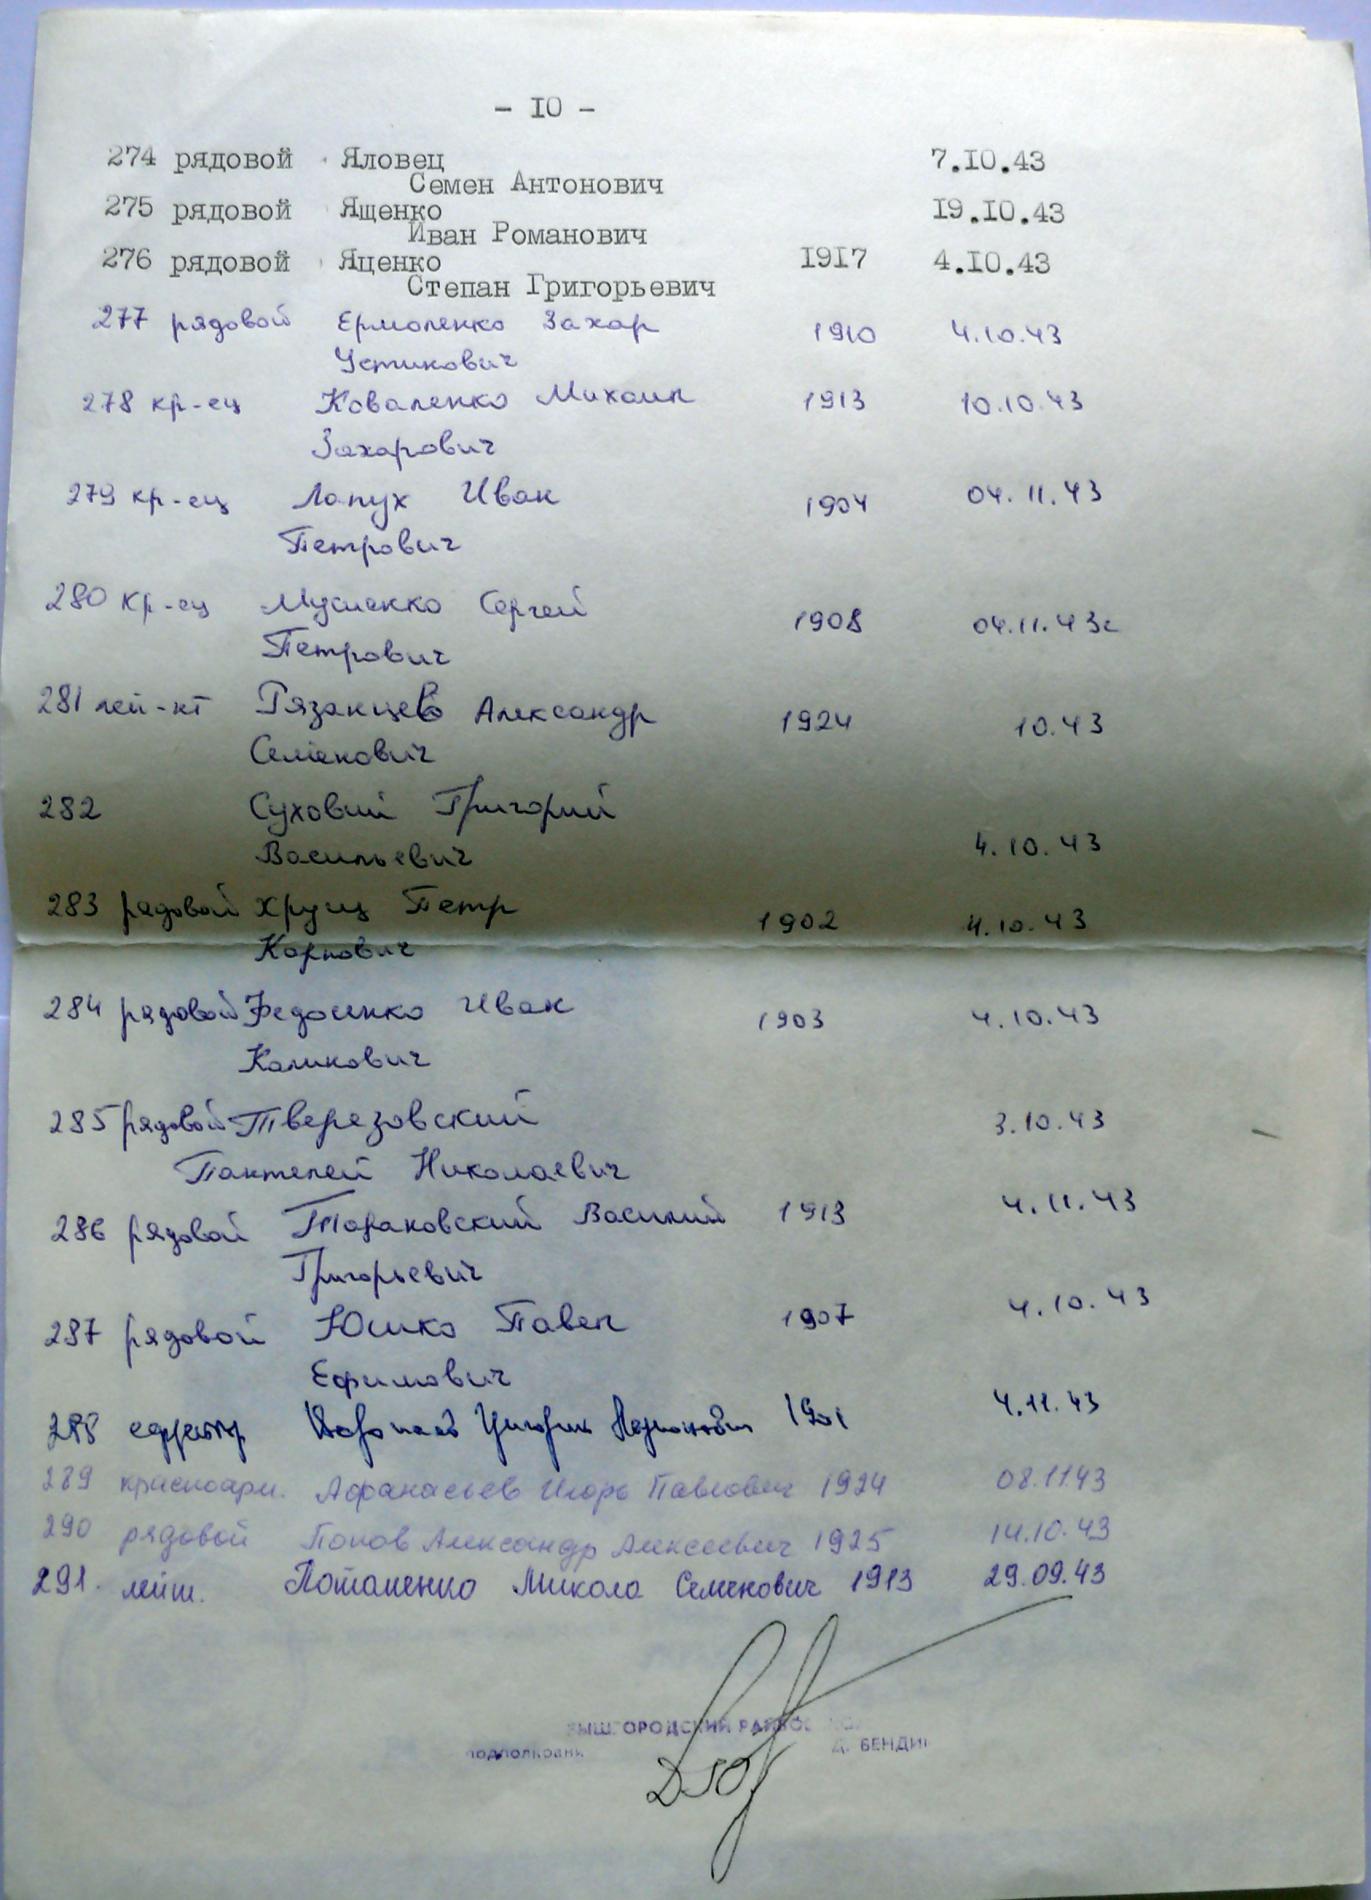 - 10 -
274 рядовой Яловец 7.10.43
Семен Антонович
275 рядовой Ященко 19.10.43
Иван Романович
276 рядовой Яценко 1917 4.10.43
Степан Григорьевич
277 рядовой Ермоленко Захар 1910 4.10.43
Устинович
278 кр-ец Коваленко Михаил 1913 10.10.43
Захарович
279 кр-ец Лопух Иван 1904 04.11.43
Петрович
280 кр-ец Мусиенко Сергей 1908 04.11.43г
Петрович
281 лей-нт Рязанцев Александр 1924 10.43
Семенович
282 Суховий Григорий
Васильевич 4.10.43
283 рядовой Хрущ Петр 1902 4.10.43
Карпович
284 рядовой Федосенко Иван 1903 4.10.43
Калинович
285 рядовой Тверезовский 3.10.43
Пантелей Николаевич
286 рядовой Тораковский Василий 1913 4.11.43
Григорьевич
287 рядовой Юшко Павел 1907 4.10.43
Ефимович
288 ефрейтор 1901 4.11.43
289 красноарм. Афанасьев Игорь Павлович 1924 08.11.43
290 рядовой Попов Александр Алексеевич 1925 14.10.43
291. лейт. Потапенко Микола Семенович 1913 29.09.43
ВЫШГОРОДСКИЙ